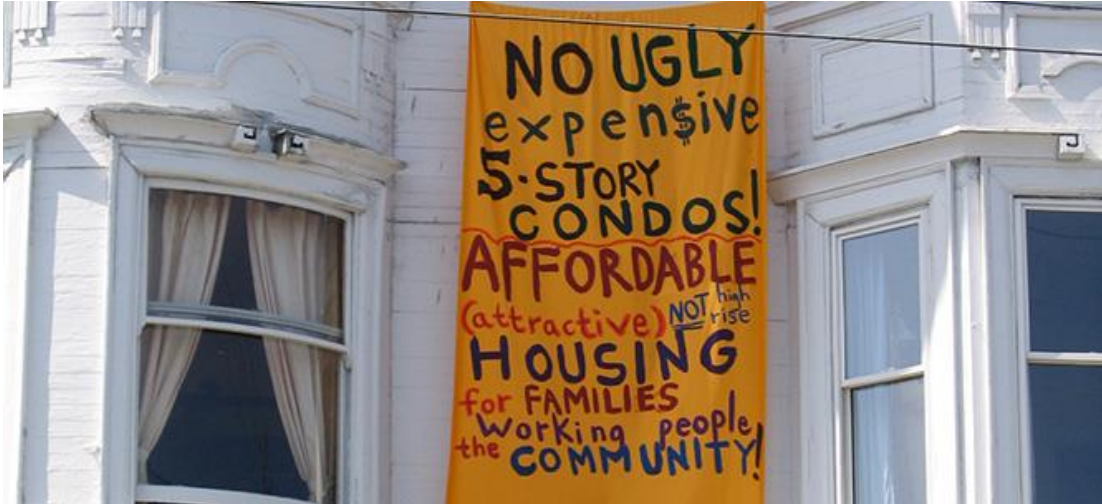 NO UGLY
expen$ive
5-STORY
CONDOS!
AFFORDABLE
(attractive) NOT high rise
HOUSING
for FAMILIES
Working people,
the COMMUNITY!